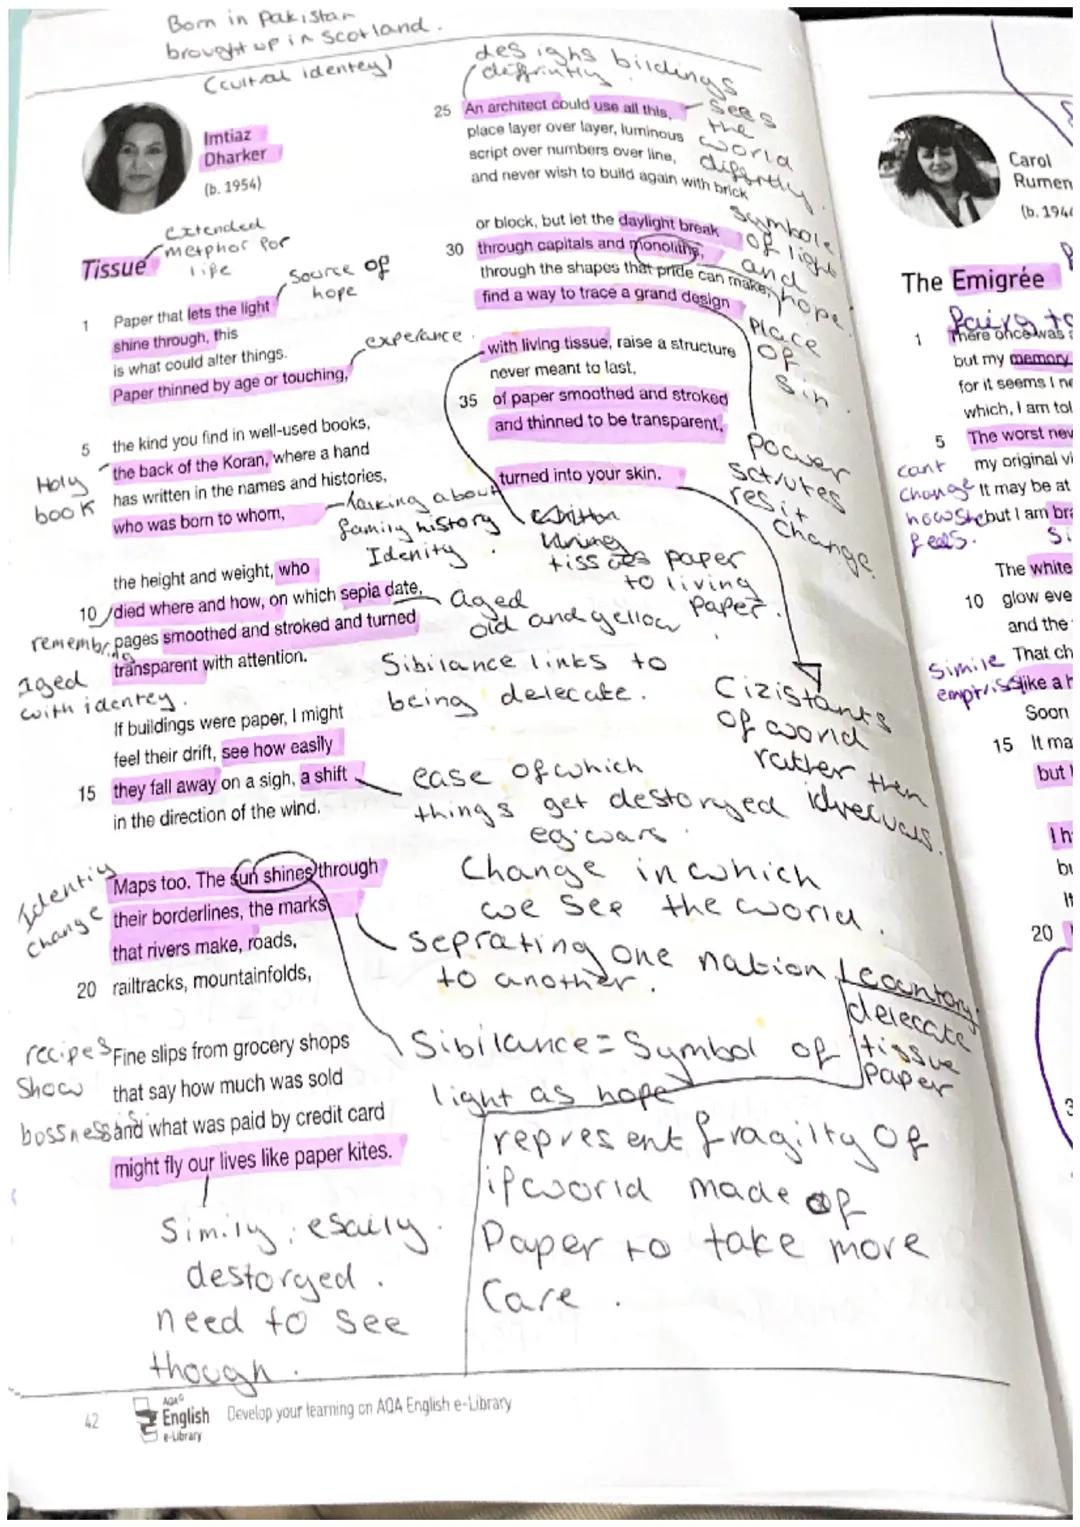 Born in Pakistan
brought up in Scotland.
(cultral identey)
Imtiaz
Dharker
(b. 1954)
extended
metphor for
life
Tissue
Source of
hope
1 Paper that lets the light
shine through, this
is what could alter things.
Paper thinned by age or touching,
experance.
5 the kind you find in well-used books,
the back of the Koran, where a hand
has written in the names and histories,
who was born to whom,
Holy
book
talking about
family history
Idenity.
the height and weight, who
10 died where and how, on which sepia date,
pages smoothed and stroked and turned
transparent with attention.
aged
old and yellow
Aged
with identey.
Sibilance links to
being delecate.
If buildings were paper, I might
feel their drift, see how easily
15 they fall away on a sigh, a shift
in the direction of the wind.
ease of which
things get destoryed
eg. wars.
Maps too. The sun shines through
their borderlines, the marks
that rivers make, roads,
20 railtracks, mountainfolds,
Identiy
change
Change in which
we see the world.
Seprating one nation / country
to another.
Fine slips from grocery shops
that say how much was sold
and what was paid by credit card
might fly our lives like paper kites.
recipes
Show
Sibilance = Symbol of
light as hope
delecate
tissue
paper
Simily; esaily.
destorged.
need to see
though.
represent fragilty of
if world made of
Paper to take more
care.
designs bildings
diffrintly
25 An architect could use all this,
place layer over layer, luminous
script over numbers over line,
and never wish to build again with brick
sees
the
world
diffrtly.
or block, but let the daylight break
30 through capitals and monoliths,
through the shapes that pride can make,
find a way to trace a grand design
symbole
of light
and
hope.
with living tissue, raise a structure
never meant to last,
35 of paper smoothed and stroked
and thinned to be transparent,
Place
of
Sin.
turned into your skin.
power
resit
Change
tissues paper
to living
paper.
Cizistants
of world
rather then
42
AQA
English
e-Library
Develop your learning on AQA English e-Library
Carol
Rumen
(b. 194
The Emigrée
1 There once was a
but my memory
for it seems I ne
which, I am tol
5 The worst new
my original vi
It may be at
but I am bra
cant
change
how she
feels.
The white
10 glow eve
and the
That ch
like a h
Simile
Soon
15 It ma
but I
I h
bu
It
20